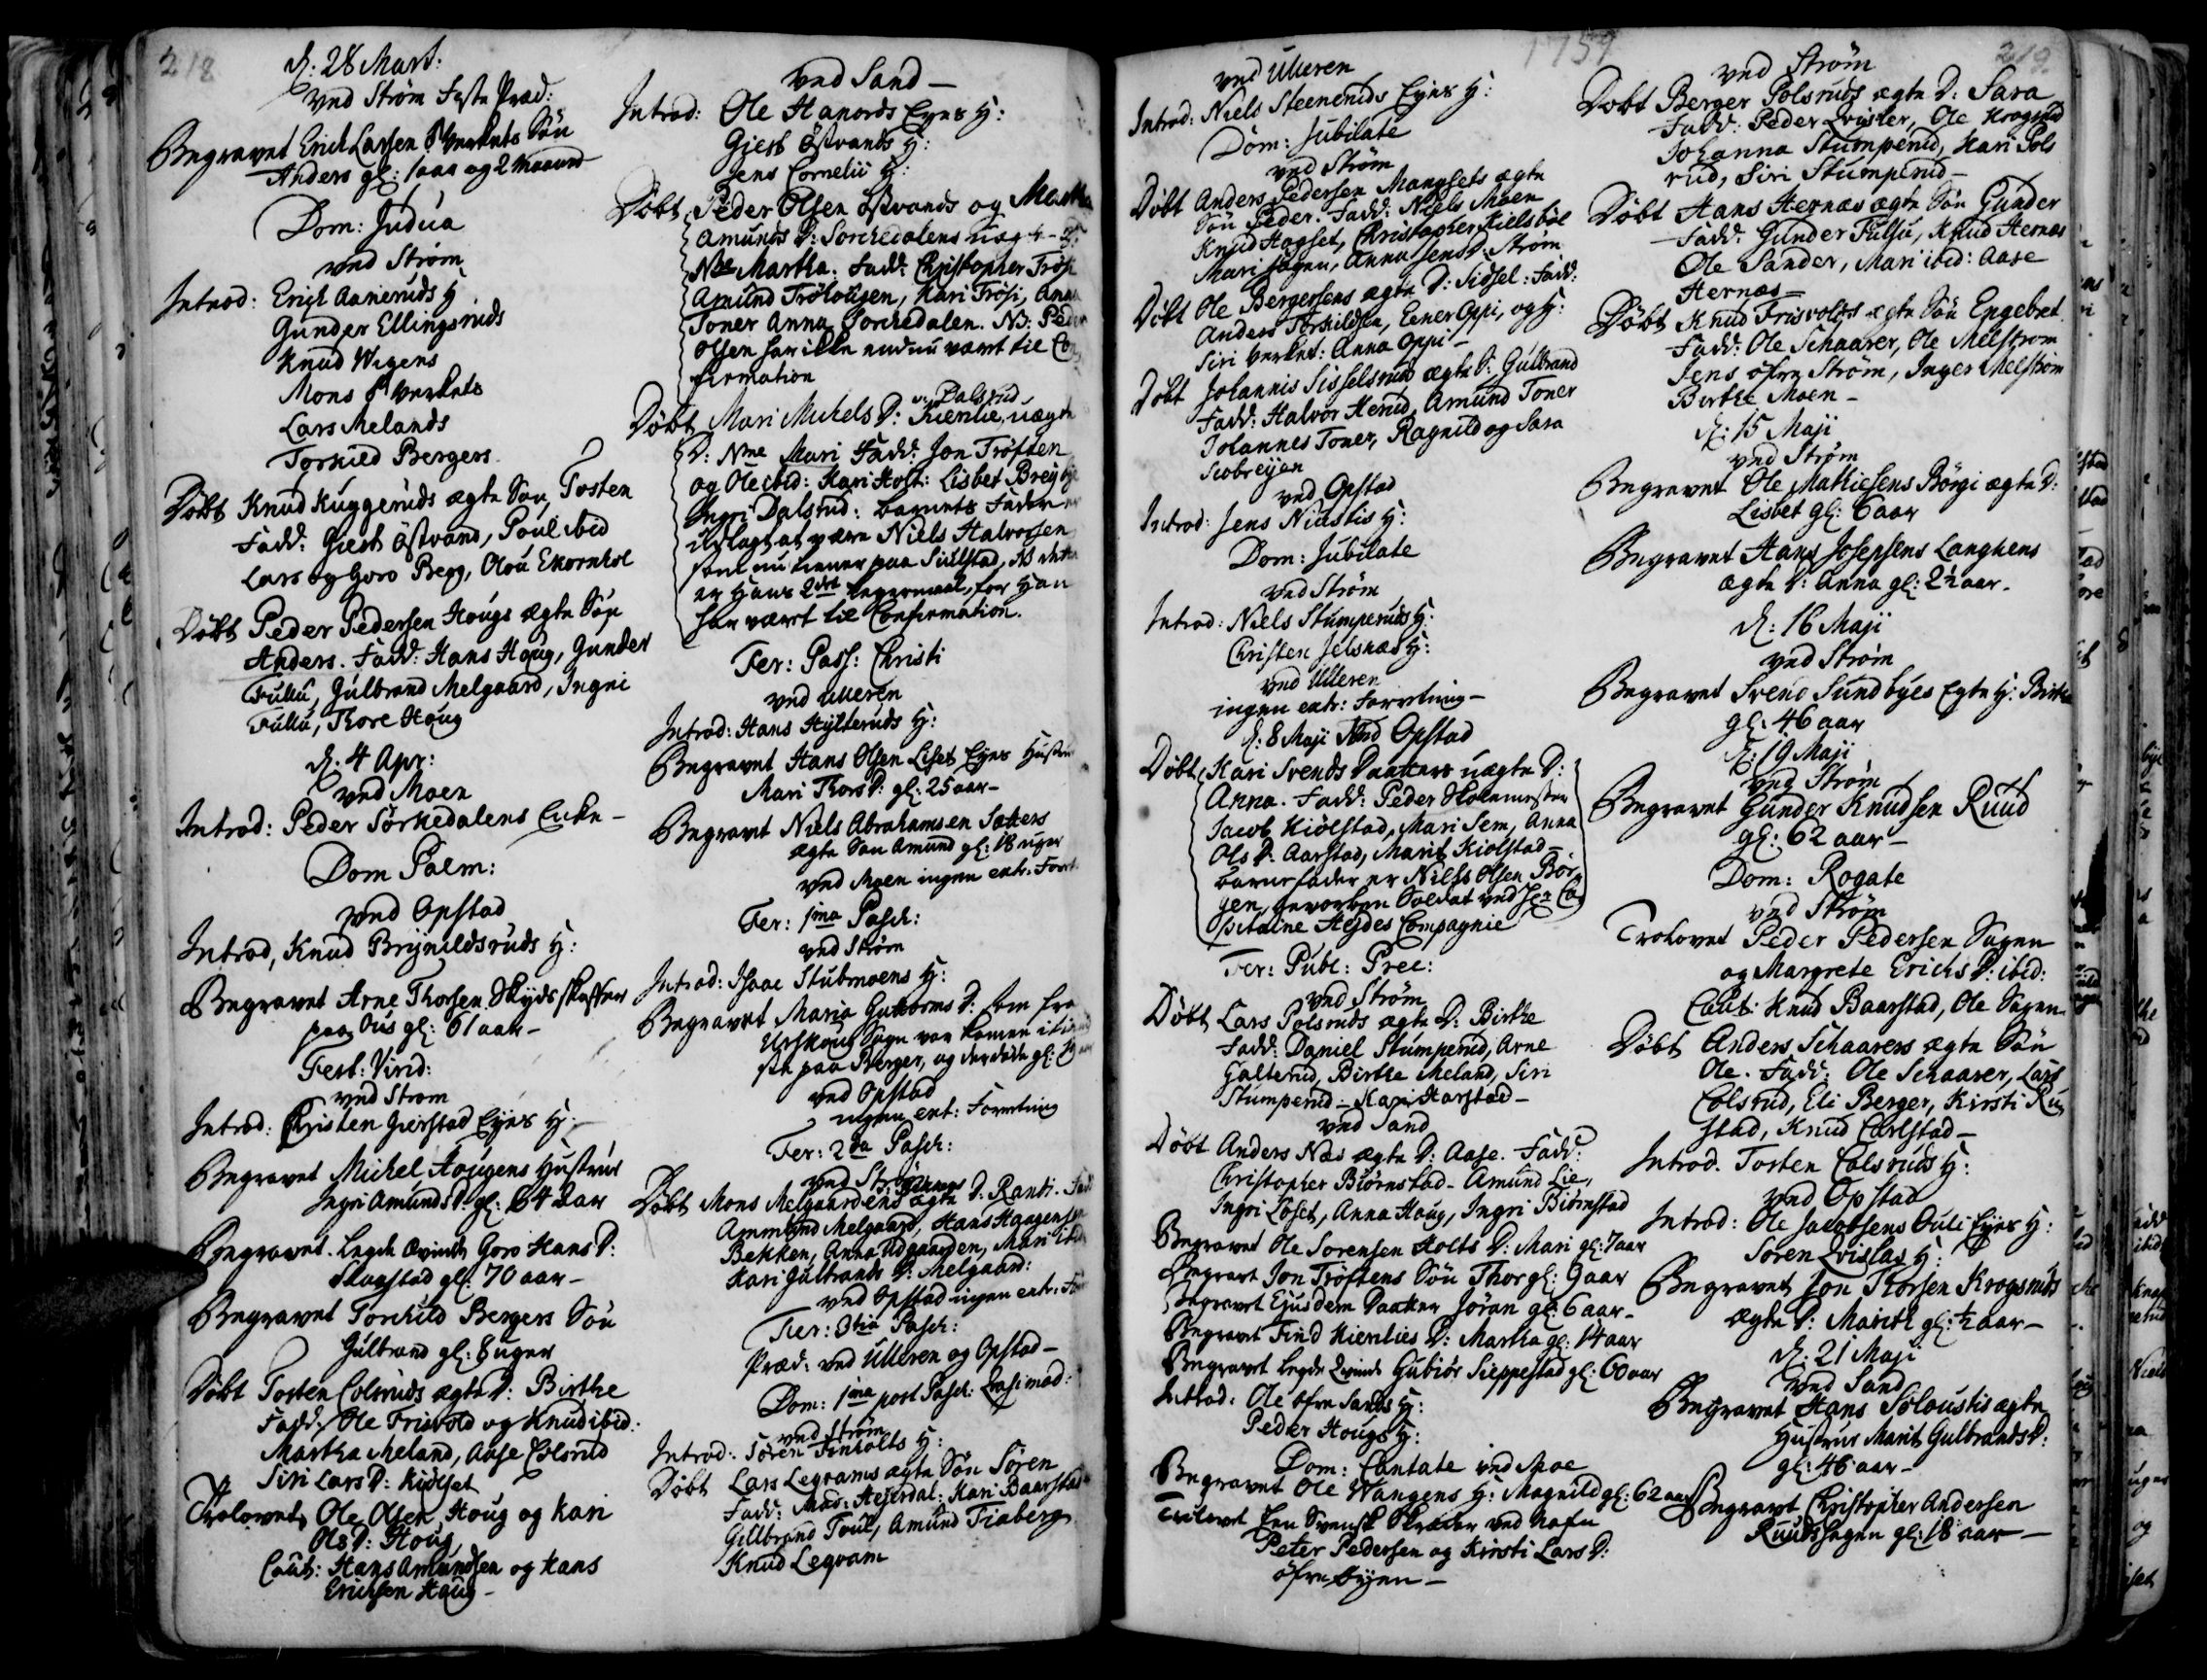 218
d: 28 Mart:
ved Strøm Faste Præd:
Begravet Erich Larsen S: Verkets Søn
Anders gl: 1 aar og 2 Maaned
Dom: Judica
ved Strøm
Introd: Erich Aaneruds H
Gunder Ellingsruds
Knud Wigens
Mons S Verkets
Lars Melands
Torkild Bergers
Døbt Knud Kuggeruds ægte Søn Tosten
Fadd: Giest Østvand, Poul ibid
Lars og Goro Begg, Olou Ekornhol
Døbt Peder Pedersen Hougs ægte Søn
Anders. Fadd: Hans Houg, Gunder
Fullu, Gulbrand Melgaard, Ingri
Fullu, Thore Houg
d: 4 Apr:
ved Moen
Introd: Peder Sorkedalens Enke -
Dom Palm:
ved Opstad
Introd, Knud Brynildsruds H:
Begravet Arne Thorsen Skydsskaffer
paa Ous gl: 61 aar -
Fest: Virid:
ved Strøm
Introd: Christen Gierstad Eyes H:
Begravet Michel Hougens Hustrue
Ingri Amunds D: gl: 64 aar
Begravet Legde Qvinde Goro Hans D:
Skarstad gl: 70 aar -
Begravet Torkild Bergers Søn
Gulbrand gl: 8 uger
Døbt Tosten Colsruds ægte D: Birthe
Fadd: Ole Frisvold og Knud ibid:
Martha Meland, Aase Colsrud
Siri Lars D: Kiølset
Trolovet Ole Olsen Houg og Kari
Ols D: Houg
Caut: Hans Amundsen og Hans
Erichsen Houg -
ved Sand -
Introd: Ole Hanords Eyes H:
Giest Østvands H:
Jens Cornelii H:
Døbt Peder Olsen Østvands og Martha
Amunds D: Sorkedalens uægte D:
Nne Martha. Fadd: Christopher Trøsi
Amund Trøhougen, Kari Trøsi, Anne
Toner Anna Sorkedalen. NB: Peder
Olsen har ikke endnu været til Con
firmation
Døbt Mari Michels D: Kienlie, uægte
v: Dalsrud
D: Nne Mari Fadd: Jon Trøften
og Ole ibid: Kari Holt: Lisbet Breyby
Ingri Dalsrud: barnets Fader er
udlagt at være Niels Halvorsen
som nu tiener paa Siulstad, NB dette
er Hans 2det Leyermaal, for Han
har været til Confirmation.
Fer: Pass: Christi
ved Ulleren
Introd: Hans Hylteruds H:
Begravet Hans Olsen Liset Eyes Hustru
Mari Thors D: gl: 25 aar -
Begravet Niels Abrahamsen Sakers
ægte Søn Amund gl: 18 uger
ved Moen ingen extr. Forr
Fer: 1ma Pasch:
ved Strøm
Introd: Isaac Stubmoens H:
Begravet Maria Guttorms D: som fra
Urskoug Sogn var kommen
paa Berger, og der døde gl:
ved Opstad
ingen ext: Forretning
Fer: 2da Pasch:
ved Strøm
Døbt Mons Melgaard Eyes ægte D. Randi. Fadd
Ammund Melgaard, Hans Haagensen
Bekken, Anna Udgaarden, Mari ibid
Kari Gulbrands D: Melgaard:
ved Opstad ingen extr: Forr
Fer: 3tia Pasch:
Præd: ved Ulleren og Opstad -
Dom: 1ma post Pasch: Qvasimod:
ved Strøm
Introd: Søren Finholts H:
Døbt Lars Legrams ægte Søn Søren
Fadd: Mads: Hejerdal: Kari Baarstad
Gullbrand Toul, Amund Fiaberg
Knud Legvam
1759
ved Ulleren
Introd: Niels Steeneruds Eyes H:
Dom: Jubilate
ved Strøm
Døbt Anders Pedersen Mangsets ægte
Søn Peder. Fadd: Niels Moen
Knud Hagset, Christopher Kielsbøl
Mari Hagen, Anna Jens D: Strøm
Døbt Ole Bergersens ægte D: Sidsel: Fadd:
Anders Torkildsen, Eener Oppi, og H:
Siri Verket: Anna Oppi -
Døbt Johannis Sisselsrud ægte D: Gulbrand
Fadd: Halvor Herud, Amund Toner
Johannes Toner, Ragnild og Sara
Scobreyen
ved Opstad
Introd: Jens Niustis H:
Dom: Jubilate
ved Strøm
Introd: Niels Stumperuds H:
Christen Jelsnæs H:
ved Ulleren
ingen extr: Forretning -
d: 8 Maji ved Opstad
Døbt Kari Svends Daatters uægte D:
Anna. Fadd: Peder Skolemester
Jacob Kiølstad, Mari Sem, Anna
Ols D: Aarstad, Marit Kiølstad -
barnefader er Niels Olsen Bør
gen, geworben Soldat ved Hr Ca
pitaine Heydes Compagnie
Fer: Publ: Prec:
ved Strøm
Døbt Lars Polsruds ægte D: Birthe
Fadd: Daniel Stumperud, Arne
Galterud, Birthe Meland, Siri
Stumperud - Kari Harstad -
ved Sand
Døbt Anders Næs ægte D: Aase. Fadd:
Christopher Biørnstad - Amund Lie,
Ingri Løset, Anna Houg, Ingri Biørnstad
Begravet Ole Sorensen Holts D: Mari gl: 7 aar
Begravet Jon Trøftens Søn Thor gl: 9 aar
Begravet Ejusdem Daatter Jøran gl: 6 aar -
Begravet Find Kienlies D: Martha gl: 14 aar
Begravet Legde Qvinde Gubiør Sieppestad gl: 60 aar
Introd: Ole øfre Sands H:
Peder Hougs H:
Dom: Cantate ved Moe
Begravet Ole Wangens H: Magnild gl: 62 aar
Trolovet Een Svensk Skræder ved Nafn
Peter Pedersen og Kirsti Lars D:
øfre byen -
219.
ved Strøm
Døbt Berger Polsruds ægte D: Sara
Fadd: Peder Qvisler, Ole Krogsrud
Johanna Stumperud, Kari Pols
rud, Siri Stumperud -
Døbt Hans Hernæs ægte Søn Gunder
Fadd: Gunder Fulsu, Knud Hernæs
Ole Sander, Mari ibid: Aase
Hernæs -
Døbt Knud Frisvolds ægte Søn Engebret
Fadd: Ole Schaarer, Ole Melstrøm
Jens øfre Strøm, Inger Melstrøm
Birthe Moen -
d: 15 Maji
ved Strøm
Begravet Ole Mathiesens Børgi ægte D:
Lisbet gl: 6 aar
Begravet Hans Josepsens Langhens
ægte D: Anna gl: 2½ aar -
d: 16 Maji
ved Strøm
Begravet Svend Sundbyes Egte H: Birthe
gl: 46 aar
d: 19 Maji
ved Strøm
Begravet Gunder Knudsen Ruud
gl: 62 aar -
Dom: Rogate
ved Strøm
Trolovet Peder Pedersen Sagen
og Margrete Erichs D: ibid:
Caut: Knud Baarstad, Ole Sagen
Døbt Anders Schaarers ægte Søn
Ole. Fadd: Ole Schaarer, Lars
Colsrud, Eli Berger, Kirsti Ru
stad, Knud Carlstad -
Introd. Tosten Colsruds H:
ved Opstad
Introd: Ole Jacobsens Ouli Eyes H:
Søren Qvislas H:
Begravet Jon Thorsen Krogsruds
ægte D: Marith gl: ½ aar -
d: 21 Maji
ved Sand
Begravet Hans Soloustis ægte
Hustrue Marit Gulbrands D:
gl: 46 aar -
Begravet Christopher Andersen
Ruudshagen gl: 18 aar -